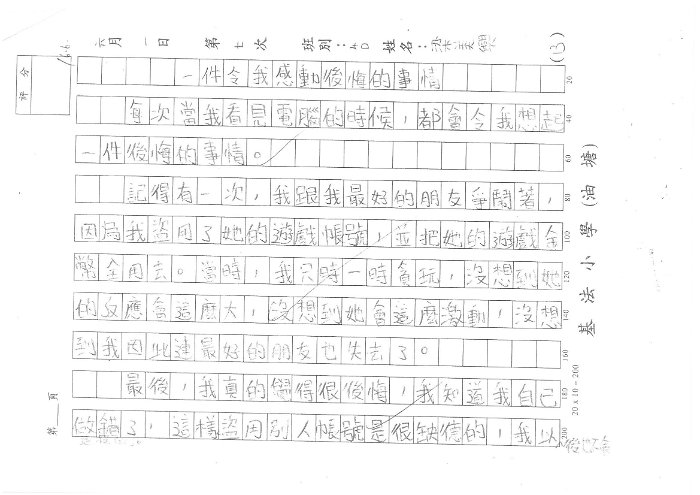 六月一日 第七次 班別：4D 姓名：梁美 (13)
一件令我感動後悔的事情
每次當我看見電腦的時候，都會令我想起
一件後悔的事情。
記得有一次，我跟我最好的朋友爭鬧著，
因為我盜用了她的遊戲帳號，並把她的遊戲金
幣全用去。當時，我只時一時貪玩，沒想到她
的反應會這麼大，沒想到她會這麼激動，沒想
到我因此連最好的朋友也失去了。
最後，我真的覺得很後悔，我知道我自己
做錯了，這樣盜用別人帳號是很缺德的，我以
後也不會
評分
第 頁
基法小學（油塘）
20
40
60
80
100
120
140
160
180
200
20 x 10 = 200